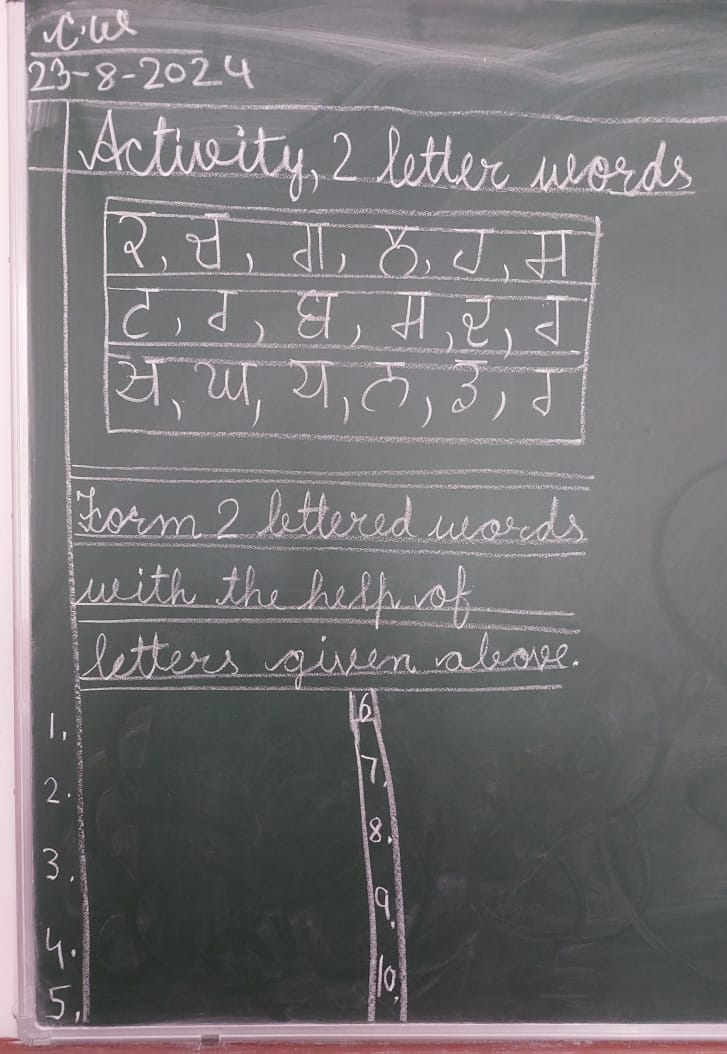 C.W
23-8-2024
Activity, 2 letter words
ਖ਼, ਚ, ਗ, ਨ, ਹ, ਸ
ਟ, ਰ, ਬ, ਸ, ਦ, ਰ
ਜ, ਘ, ਧ, ਨ, ਤ, ਰ
Form 2 lettered words
with the help of
letters given above.
1.
2.
3.
4.
5.
6
7.
8.
9.
10.